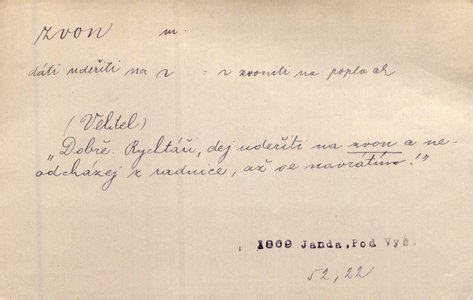 zvon m.
dáti udeřiti na z = z zvoniti na poplach
(Velitel)
"Dobře. Rychtáři, dej udeřiti na zvon a ne-
odcházej z radnice, až se navrátím!"
1869 Janda, Pod Vyš.
52, 22